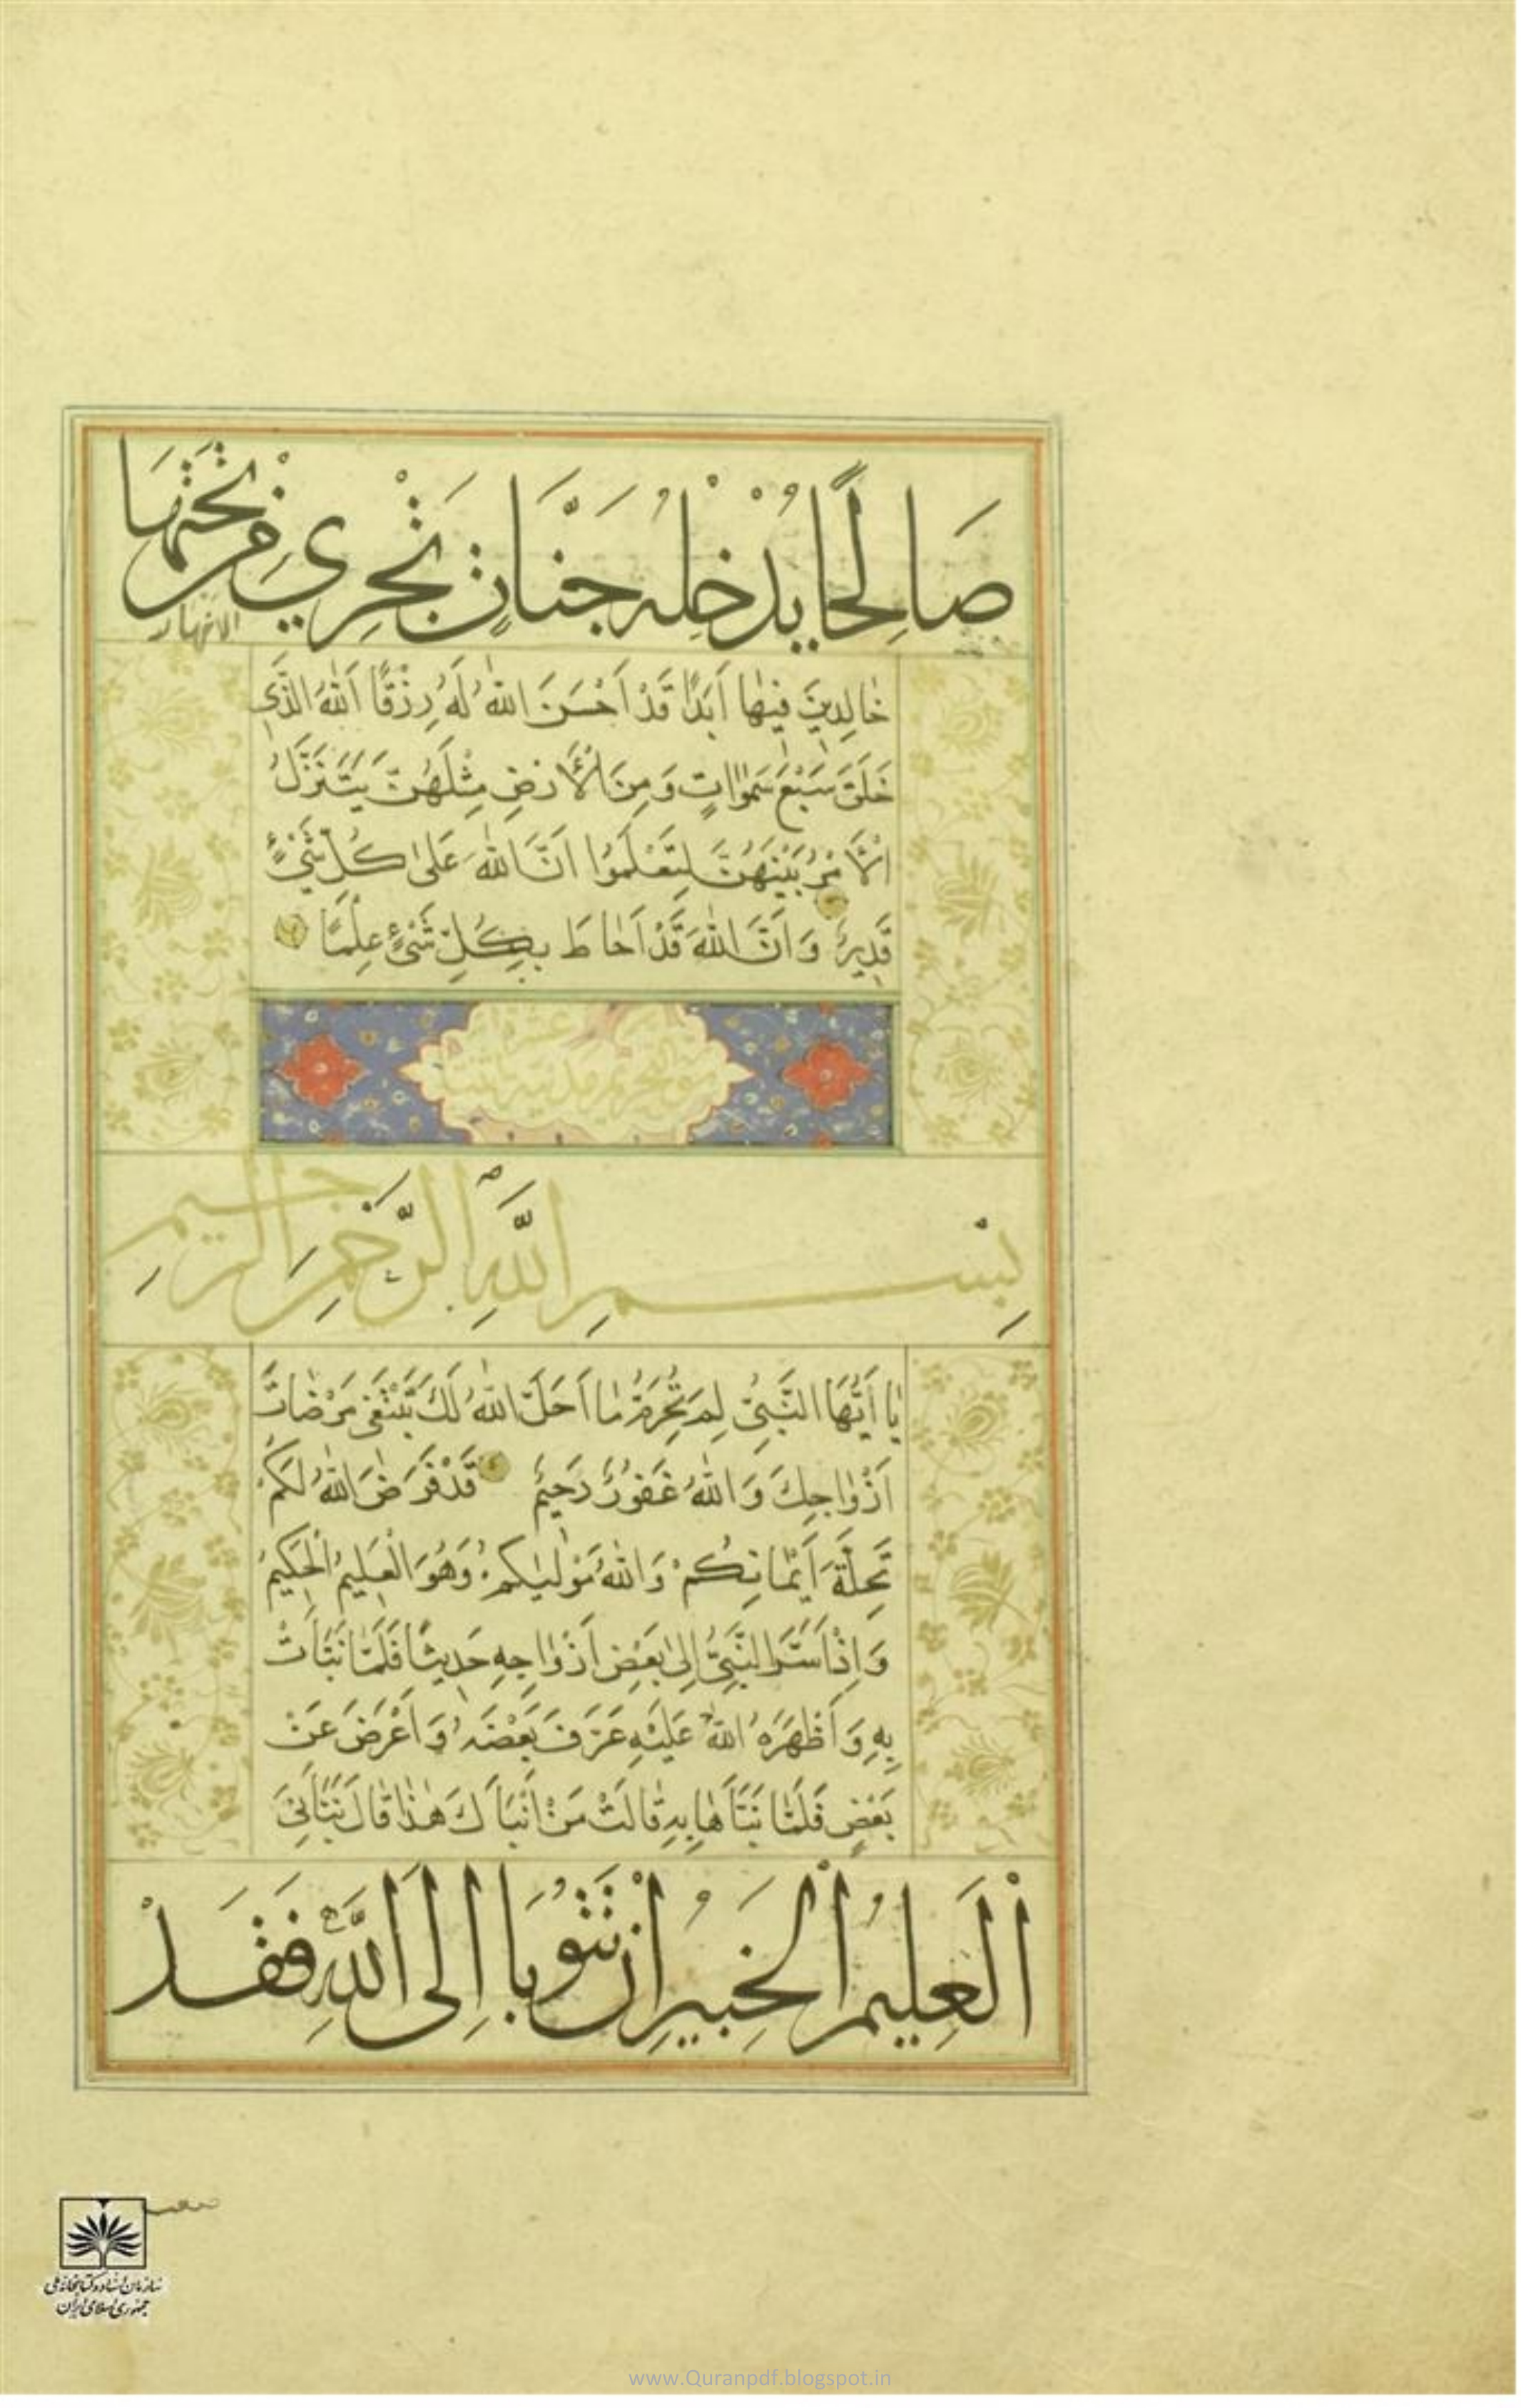 صَالِحًا يُدْخِلْهُ جَنَّاتٍ تَجْرِي مِنْ تَحْتِهَا
الانهار
خٰالِدِينَ فِيهٰا أَبَدًا قَدْ اَحْسَنَ اللّٰهُ لَهُ رِزْقًا اَللّٰهُ الَّذِي
خَلَقَ سَبْعَ سَمٰوٰاتٍ وَمِنَ الْأَرْضِ مِثْلَهُنَّ يَتَنَزَّلُ
الْأَمْرُ بَيْنَهُنَّ لِتَعْلَمُوا اَنَّ اللّٰهَ عَلىٰ كُلِّ شَيْءٍ
قَدِيرٌ وَاَنَّ اللّٰهَ قَدْ اَحٰاطَ بِكُلِّ شَيْءٍ عِلْمًا
سورة التحريم مدنية اثنتا
عشرة
بِسْمِ اللَّهِ الرَّحْمٰنِ الرَّحِيمِ
يٰا أَيُّهَا النَّبِيُّ لِمَ تُحَرِّمُ مٰا اَحَلَّ اللّٰهُ لَكَ تَبْتَغِي مَرْضٰاتَ
اَزْوٰاجِكَ وَاللّٰهُ غَفُورٌ رَحِيمٌ قَدْ فَرَضَ اللّٰهُ لَكُمْ
تَحِلَّةَ اَيْمٰانِكُمْ وَاللّٰهُ مَوْلٰيكُمْ وَهُوَ الْعَلِيمُ الْحَكِيمُ
وَاِذْ اَسَرَّ النَّبِيُّ اِلىٰ بَعْضِ اَزْوٰاجِهِ حَدِيثًا فَلَمّٰا نَبَّأَتْ
بِهِ وَاَظْهَرَهُ اللّٰهُ عَلَيْهِ عَرَّفَ بَعْضَهُ وَاَعْرَضَ عَنْ
بَعْضٍ فَلَمّٰا نَبَّأَهٰا بِهِ قٰالَتْ مَنْ اَنْبَأَكَ هٰذٰا قٰالَ نَبَّأَنِيَ
الْعَلِيمُ الْخَبِيرُ اِنْ تَتُوبَا اِلَى اللَّهِ فَقَدْ
سازمان اسناد و کتابخانه ملی
جمهوری اسلامی ایران
www.Quranpdf.blogspot.in